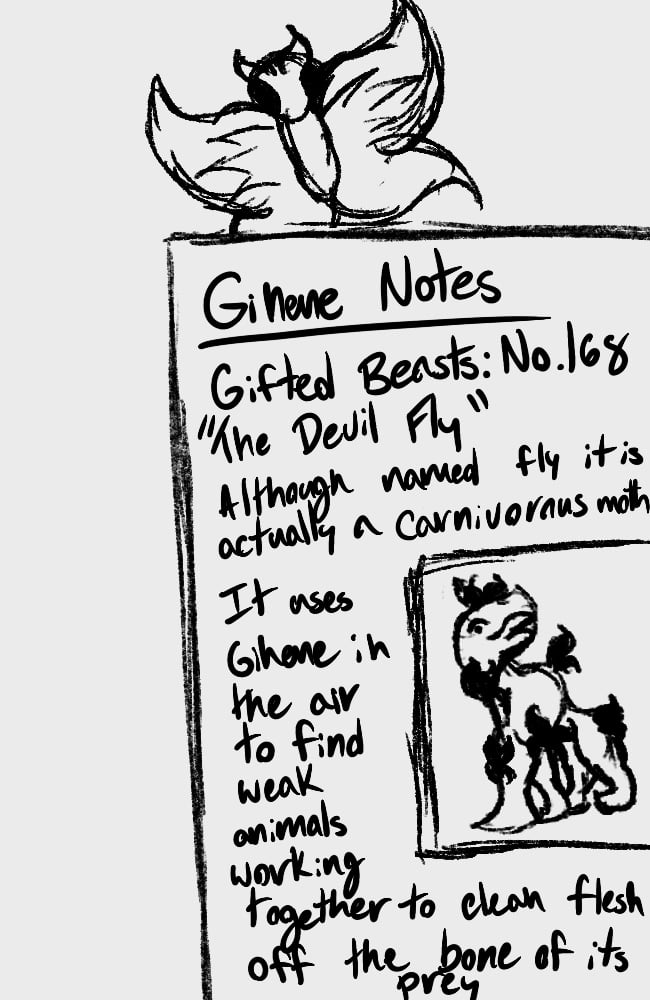 Gihene Notes
Gifted Beasts: No.168
"The Devil Fly"
Although named fly it is
actually a carnivorous moth
It uses
Gihene in
the air
to find
weak
animals
working
together to clean flesh
off the bone of its
prey